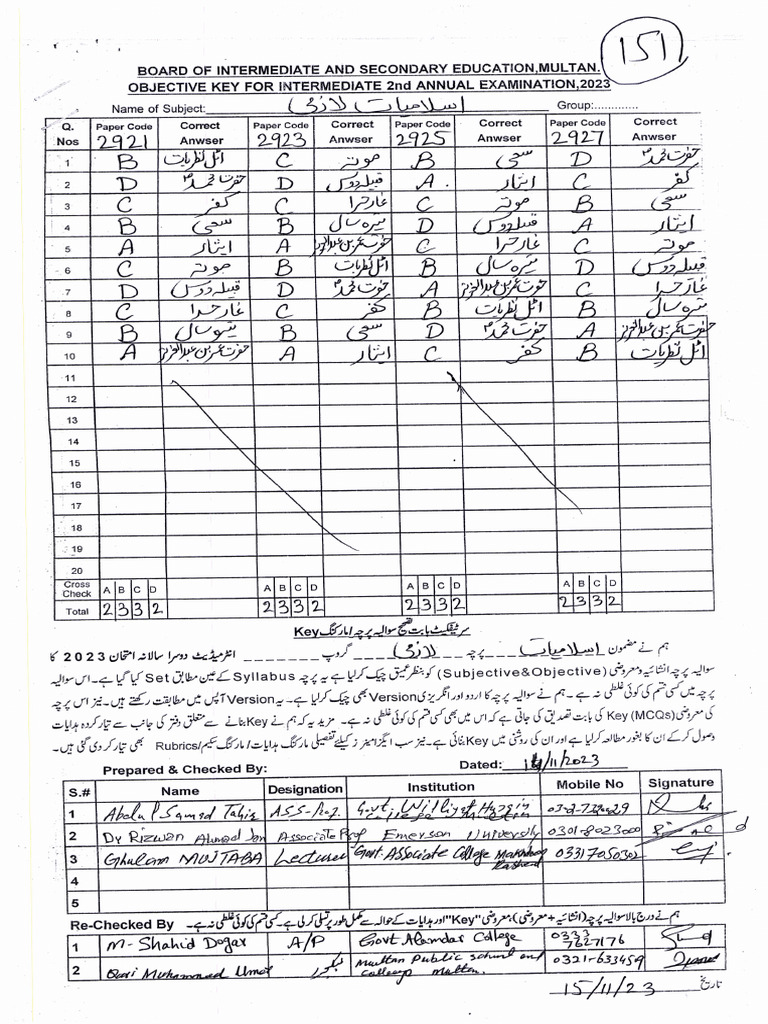 151
BOARD OF INTERMEDIATE AND SECONDARY EDUCATION,MULTAN.
OBJECTIVE KEY FOR INTERMEDIATE 2nd ANNUAL EXAMINATION,2023
Name of Subject: اسلامیات لازمی Group:.............
Q. Nos Paper Code 2921 Correct Anwser Paper Code 2923 Correct Anwser Paper Code 2925 Correct Anwser Paper Code 2927 Correct Anwser
1 B اٹل نظریات C موتہ B سعی D حضرت محمدؐ
2 D حضرت محمدؐ D قبیلہ دوس A ایثار C کفر
3 C کفر C غار حرا C موتہ B سعی
4 B سعی B تیرہ سال D قبیلہ دوس A ایثار
5 A ایثار A حضرت عمر بن عبدالعزیز C غار حرا C موتہ
6 C موتہ B اٹل نظریات B تیرہ سال D قبیلہ دوس
7 D قبیلہ دوس D حضرت محمدؐ A حضرت عمر بن عبدالعزیز C غار حرا
8 C غار حرا C کفر B اٹل نظریات B تیرہ سال
9 B تیرہ سال B سعی D حضرت محمدؐ A حضرت عمر بن عبدالعزیز
10 A حضرت عمر بن عبدالعزیز A ایثار C کفر B اٹل نظریات
11
12
13
14
15
16
17
18
19
20
Cross Check A B C D A B C D A B C D A B C D
Total 2 3 3 2 2 3 3 2 2 3 3 2 2 3 3 2
سرٹیفکیٹ بابت تصحیح سوالیہ پرچہ / مارکنگ Key
ہم نے مضمون اسلامیات پرچہ لازمی گروپ انٹرمیڈیٹ دوسرا سالانہ امتحان 2023 کا
سوالیہ پرچہ انشائیہ و معروضی (Subjective&Objective) کو بنظر عمیق چیک کر لیا ہے یہ پرچہ Syllabus کے عین مطابق Set کیا گیا ہے۔ اس سوالیہ
پرچہ میں کسی قسم کی کوئی غلطی نہ ہے۔ ہم نے سوالیہ پرچہ کا اردو اور انگریزی Version بھی چیک کر لیا ہے۔ یہ Version آپس میں مطابقت رکھتے ہیں۔ نیز اس پرچہ
کی معروضی (MCQs) Key کی بابت تصدیق کی جاتی ہے کہ اس میں بھی کسی قسم کی کوئی غلطی نہ ہے۔ مزید یہ کہ ہم نے Key بنانے سے متعلق دفتر کی جانب سے تیار کردہ ہدایات
وصول کر کے ان کا بغور مطالعہ کر لیا ہے اور ان کی روشنی میں Key بنائی ہے۔ نیز سب ایگزامینرز کیلئے تفصیلی مارکنگ ہدایات / مارکنگ سکیم / Rubrics بھی تیار کر دی گئی ہیں۔
Prepared & Checked By: Dated: 14/11/2023
S.# Name Designation Institution Mobile No Signature
1 Abdul Samad Tahir ASS-Prof. Govt. College
2 Dr Rizwan Ahmad Associate Prof Emerson University 0301-8023000
3 Ghulam MUJTABA Lecturer Govt. Associate College Makhdoom Rasheed 03317050302
4
5
Re-Checked By ہم نے درج بالا سوالیہ پرچہ (انشائیہ + معروضی)، معروضی "Key" اور ہدایات کے حوالہ سے مکمل طور پر تسلی کر لی ہے۔ کسی قسم کی کوئی غلطی نہ ہے۔
1 M. Shahid Dogar A/P Govt Alamdar College 0333 7627176
2 Qari Muhammad Umar لیکچرر Multan Public school and college Multan. 0321-633459
تاریخ 15/11/23